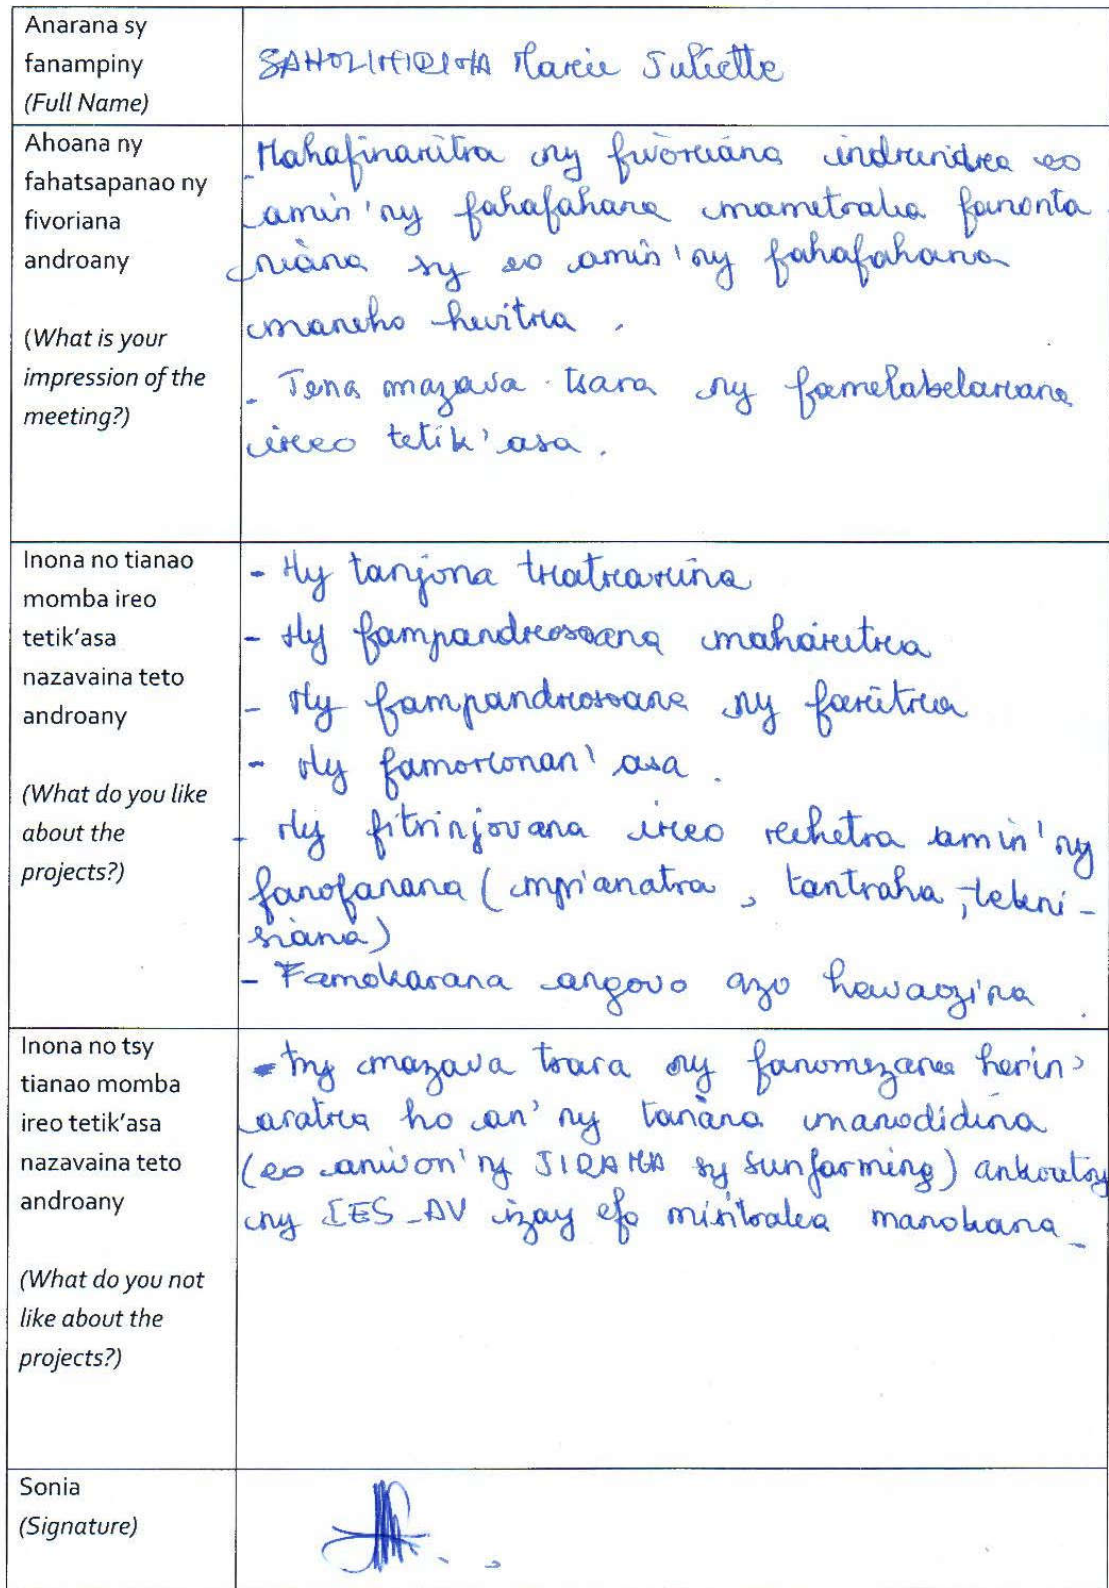 Anarana sy
fanampiny
(Full Name)
SAHOLINIRINA Marie Juliette
Ahoana ny
fahatsapanao ny
fivoriana
androany
(What is your
impression of the
meeting?)
- Mahafinaritra ny fivoriana indrindra eo
amin'ny fahafahana mametraka fanonta
niana sy eo amin'ny fahafahana
maneho hevitra.
- Tena mazava tsara ny famelabelarana
ireo tetik'asa.
Inona no tianao
momba ireo
tetik'asa
nazavaina teto
androany
(What do you like
about the
projects?)
- Ny tanjona tratrarina
- Ny fampandrosoana maharitra
- Ny fampandrosoana ny faritra
- Ny famoronan'asa.
- Ny fitsinjovana ireo rehetra amin'ny
fanofanana (mpianatra, tantsaha, tekni-
siana)
- Famokarana angovo azo havaozina.
Inona no tsy
tianao momba
ireo tetik'asa
nazavaina teto
androany
(What do you not
like about the
projects?)
- Tsy mazava tsara ny fanomezana herin'
aratra ho an'ny tanàna manodidina
(eo anivon'ny JIRAMA sy Sunfarming) ankoatry
ny IES-AV izay efa misitraka manokana
Sonia
(Signature)